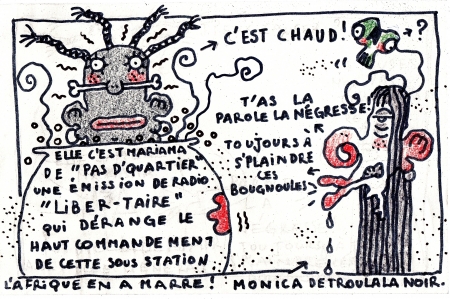 → C'EST CHAUD!
→ ?
T'AS LA
PAROLE LA NÉGRESSE!
TOUJOURS À
S'PLAINDRE
CES
BOUGNOULES
ELLE C'EST MARIAMA
DE "PAS D'QUARTIER"
UNE ÉMISSION DE RADIO
"LIBER-TAIRE"
QUI DÉRANGE LE
HAUT COMMANDEMENT
DE CETTE SOUS STATION
L'AFRIQUE EN A MARRE! MONICA DETROULALA NOIR.